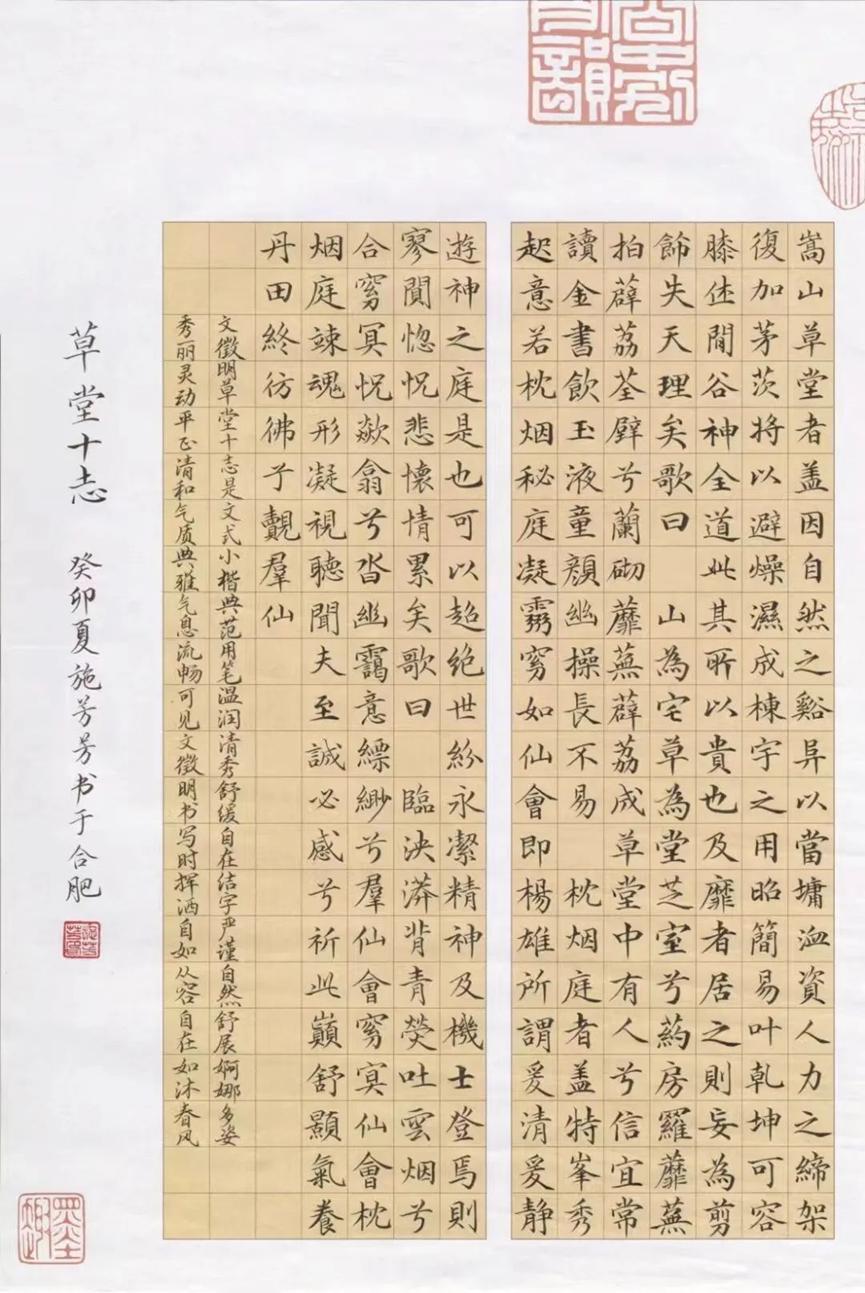 嵩山草堂者盖因自然之谿异以當墉洫資人力之締架
復加茅茨將以避燥濕成棟宇之用昭簡易叶乾坤可容
膝休閒谷神全道此其所以貴也及靡者居之則妄為剪
飾失天理矣歌曰 山為宅草為堂芝室兮葯房羅蘼蕪
拍薜荔荃壁兮蘭砌蘼蕪薜荔成草堂中有人兮信宜常
讀金書飲玉液童顏幽操長不易 枕烟庭者盖特峯秀
起意若枕烟秘庭凝霧窅如仙會即楊雄所謂爰清爰静
遊神之庭是也可以超絶世紛永潔精神及機士登焉則
寥閴惚怳悲懷情累矣歌曰 臨泱漭背青熒吐雲烟兮
合窅冥怳歘翕兮沓幽靄意縹緲兮羣仙會窅冥仙會枕
烟庭竦魂形凝視聽聞夫至誠必感兮祈此巔舒顥氣養
丹田終彷彿予覿羣仙
文徵明草堂十志是文式小楷典范用笔温润清秀舒缓自在结字严谨自然舒展婀娜多姿
秀丽灵动平正清和气质典雅气息流畅可见文徵明书写时挥洒自如从容自在如沐春风
草堂十志 癸卯夏施芳芳书于合肥